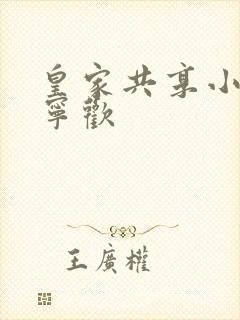 皇家共享小
寧歡
王廣權